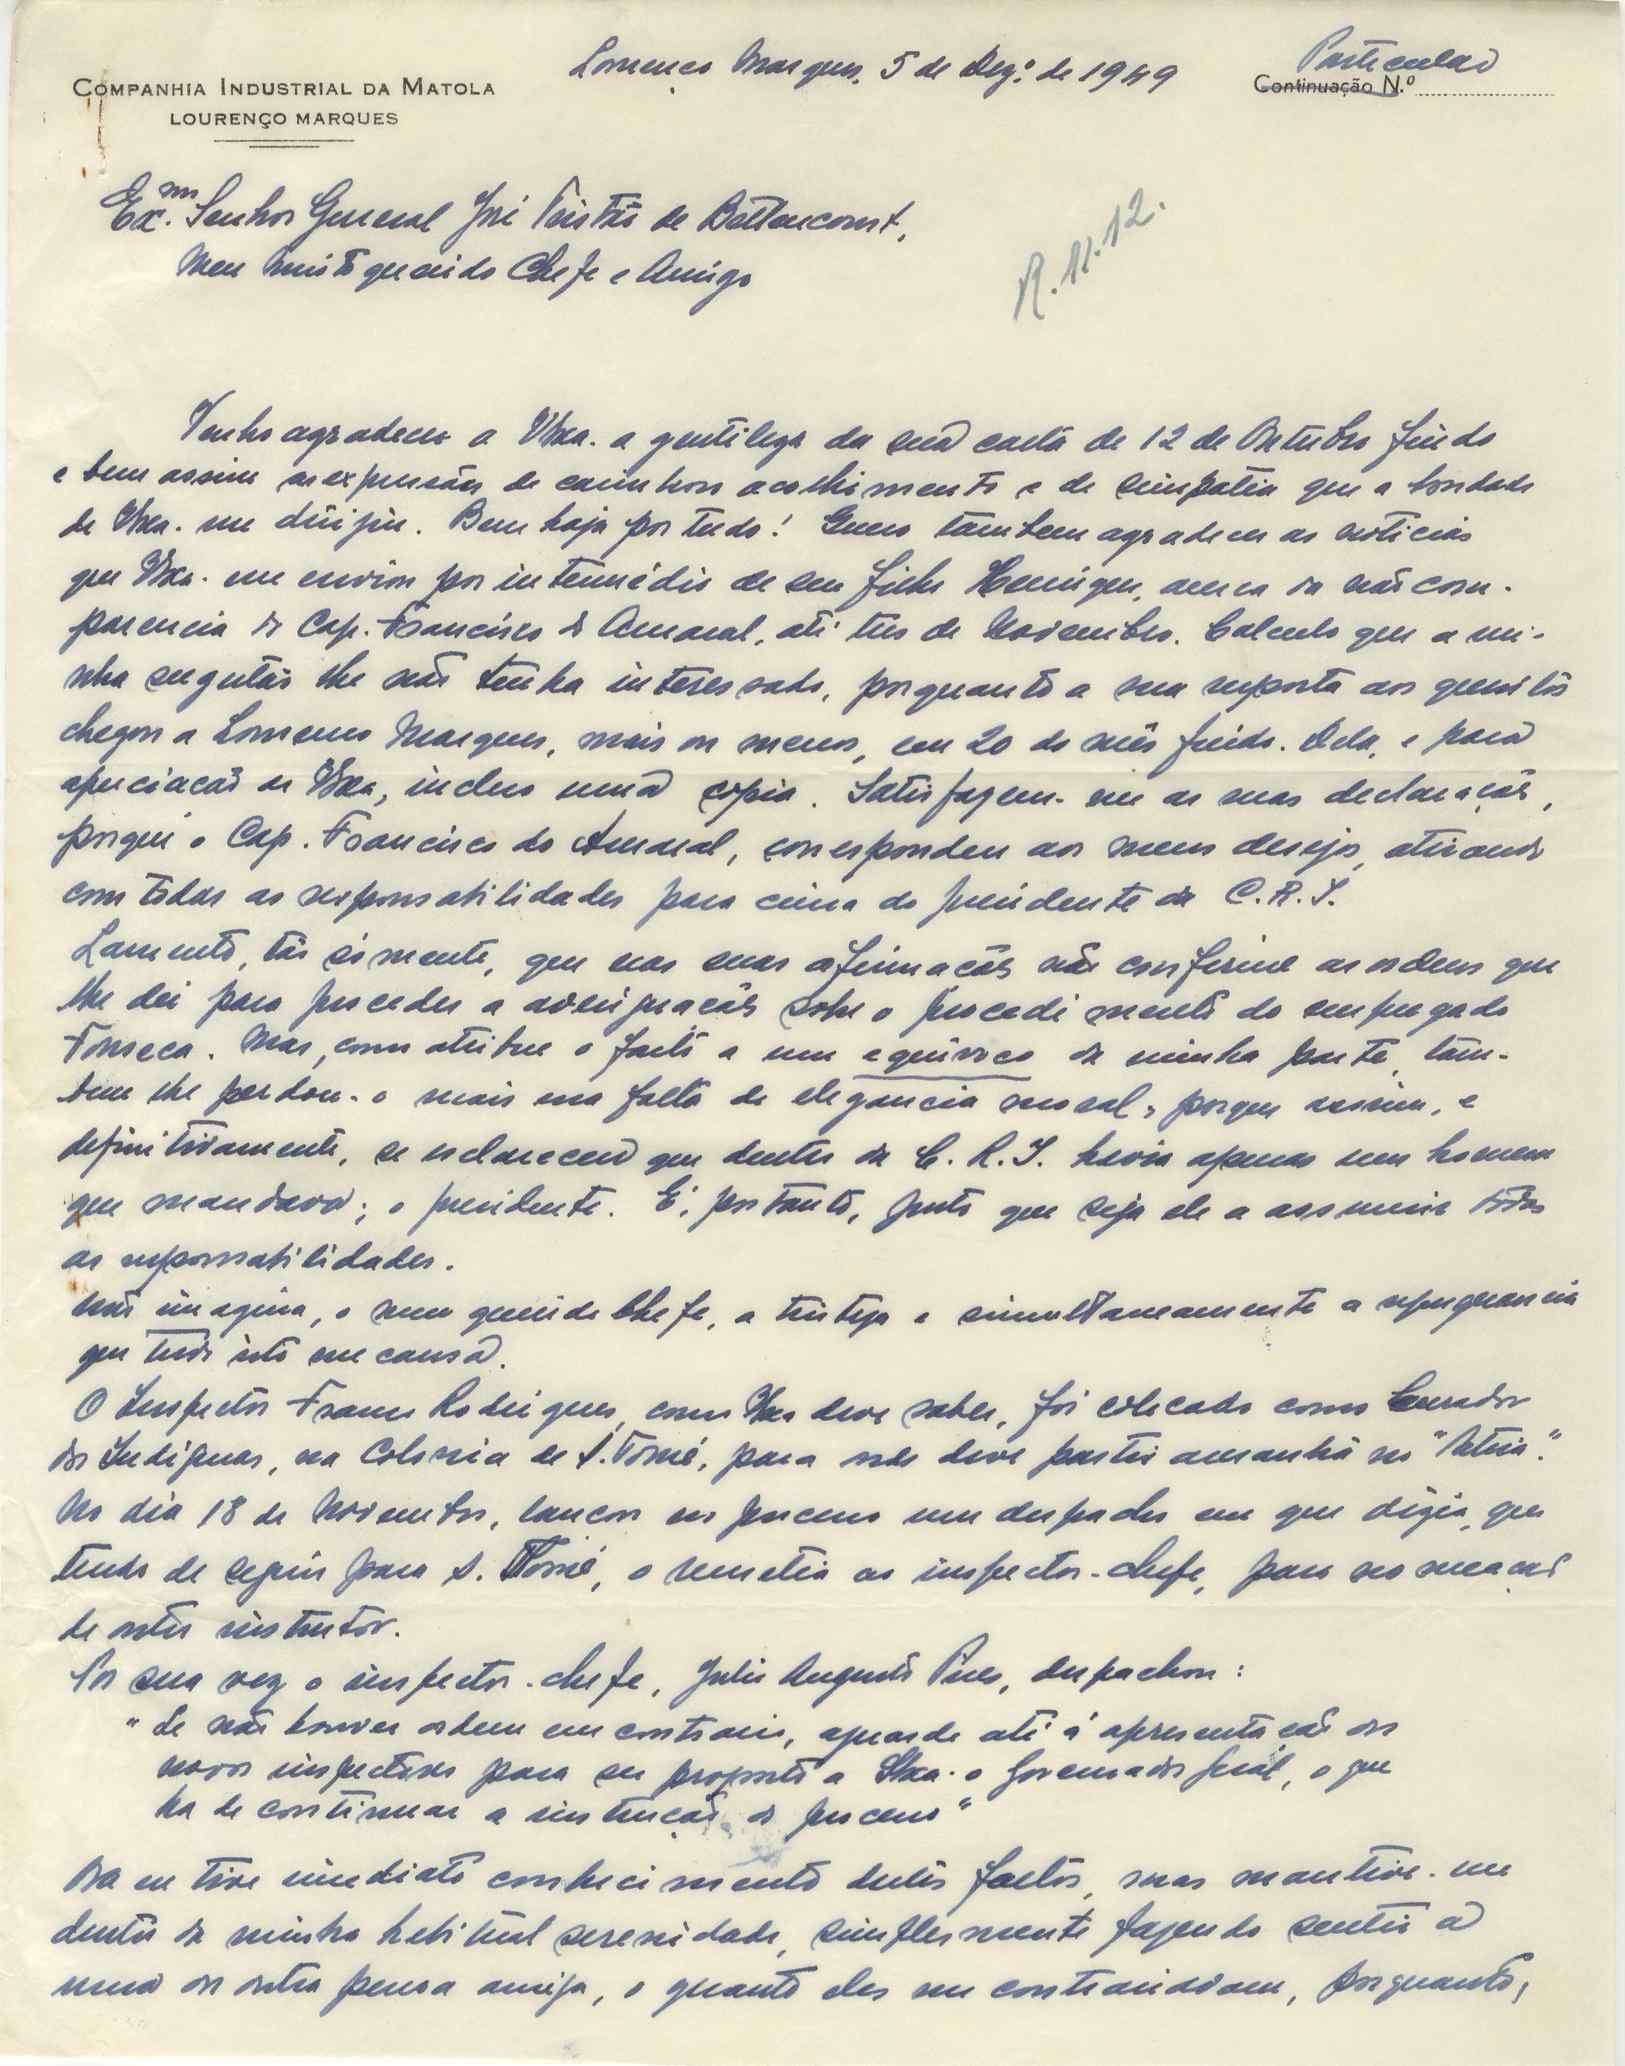 Lourenço Marques, 5 de Dezº de 1949
Particular
COMPANHIA INDUSTRIAL DA MATOLA
LOURENÇO MARQUES
Continuação N.º
Ex.mo Senhor General José Tristão de Bettencourt,
Meu muito querido Chefe e Amigo
R. 12.12.
Venho agradecer a VExa. a gentileza da sua carta de 12 de Outubro findo
e bem assim as expressões de carinhoso acolhimento e de simpatia que a bondade
de VExa. me dirigiu. Bem haja por tudo! Quero tambem agradecer as noticias
que VExa. me enviou por intermédio de seu filho Henrique, acerca da não com-
parencia do Cap. Francisco do Amaral, até tres de Novembro. Calculo que a mi-
nha sugestão lhe não tenha interessado, porquanto a sua resposta aos quesitos
chegou a Lourenço Marques, mais ou menos, em 20 do mês findo. Dela, e para
apreciação de VExa, incluo uma copia. Satisfazem-me as suas declarações,
porque o Cap. Francisco do Amaral, correspondeu aos meus desejos, atirando
com todas as responsabilidades para cima do presidente da C.R.I.
Lamento, tão sómente, que nas suas afirmações não confirme as ordens que
lhe dei para proceder a averiguações sobre o procedimento do empregado
Fonseca. Mas, como atribue o facto a um equivoco da minha parte, tam-
bem lhe perdou-o mais essa falta de elegancia moral, porque assim, e
definitivamente, se esclareceu que dentro da C.R.I. havia apenas um homem
que mandava; o presidente. É, portanto, justo que seja ele a assumir todas
as responsabilidades.
Não imagina, o meu querido Chefe, a tristeza e simultaneamente a repugnancia
que tudo isto me causa.
O Inspector Franco Rodrigues, como VExa deve saber, foi colocado como Curador
dos Indigenas, na Colonia de S. Tomé, para onde deve partir amanhã no
No dia 18 de Novembro, lançou no processo um despacho em que dizia, que
tendo de seguir para S. Tomé, o remetia ao inspector-chefe, para nomeação
de outro instrutor.
Por sua vez o inspector-chefe, Julio Augusto Pires, despachou:
"Se não houver ordem em contrario, aguarde até á apresentação dos
novos inspectores para ser proposto a SExa. o Governador Geral, o que
ha de continuar a instrução do processo"
Ora eu tive imediato conhecimento destes factos, mas mantive-me
dentro da minha habitual serenidade, simplesmente fazendo sentir a
uma ou outra pessoa amiga, o quanto eles me contrariavam, porquanto,